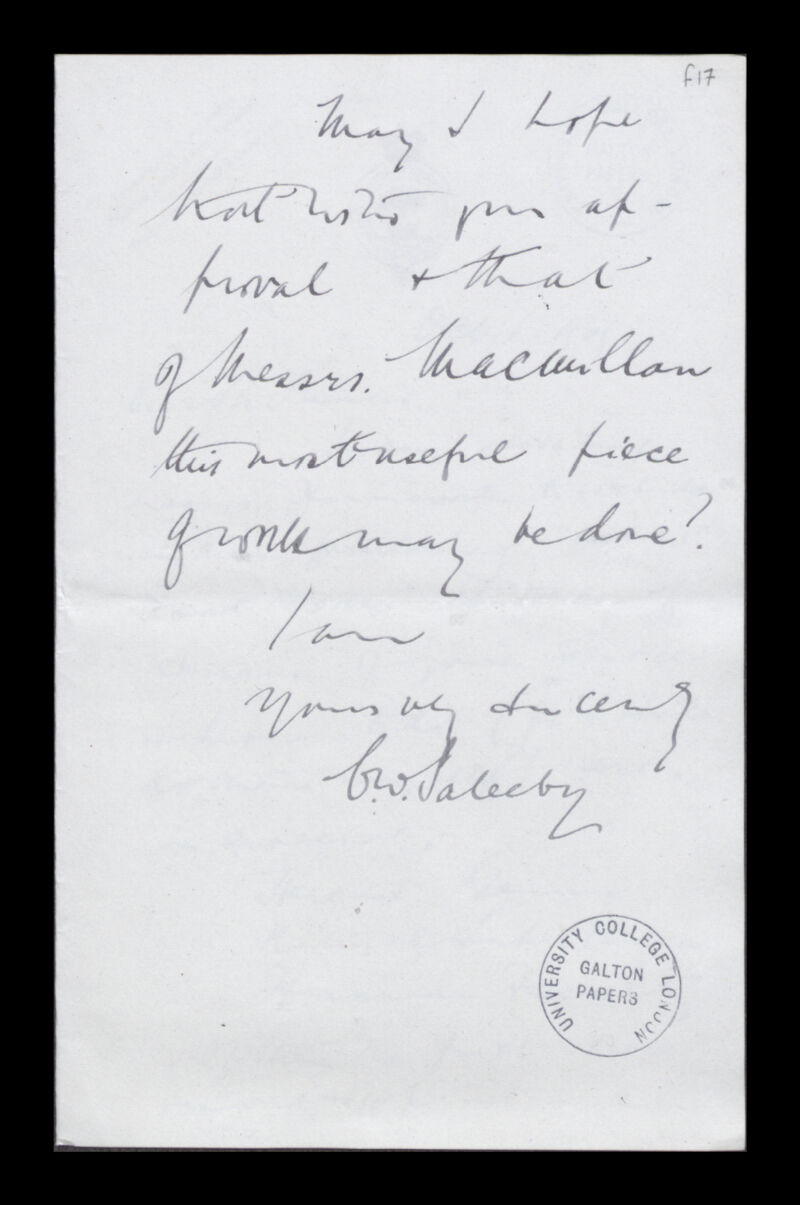 f17
May I hope
that with your ap-
proval & that
of Messrs. Macmillan
this most useful piece
of work may be done?
I am
Yours very sincerely
C.W. Saleeby
UNIVERSITY COLLEGE LONDON
GALTON
PAPERS